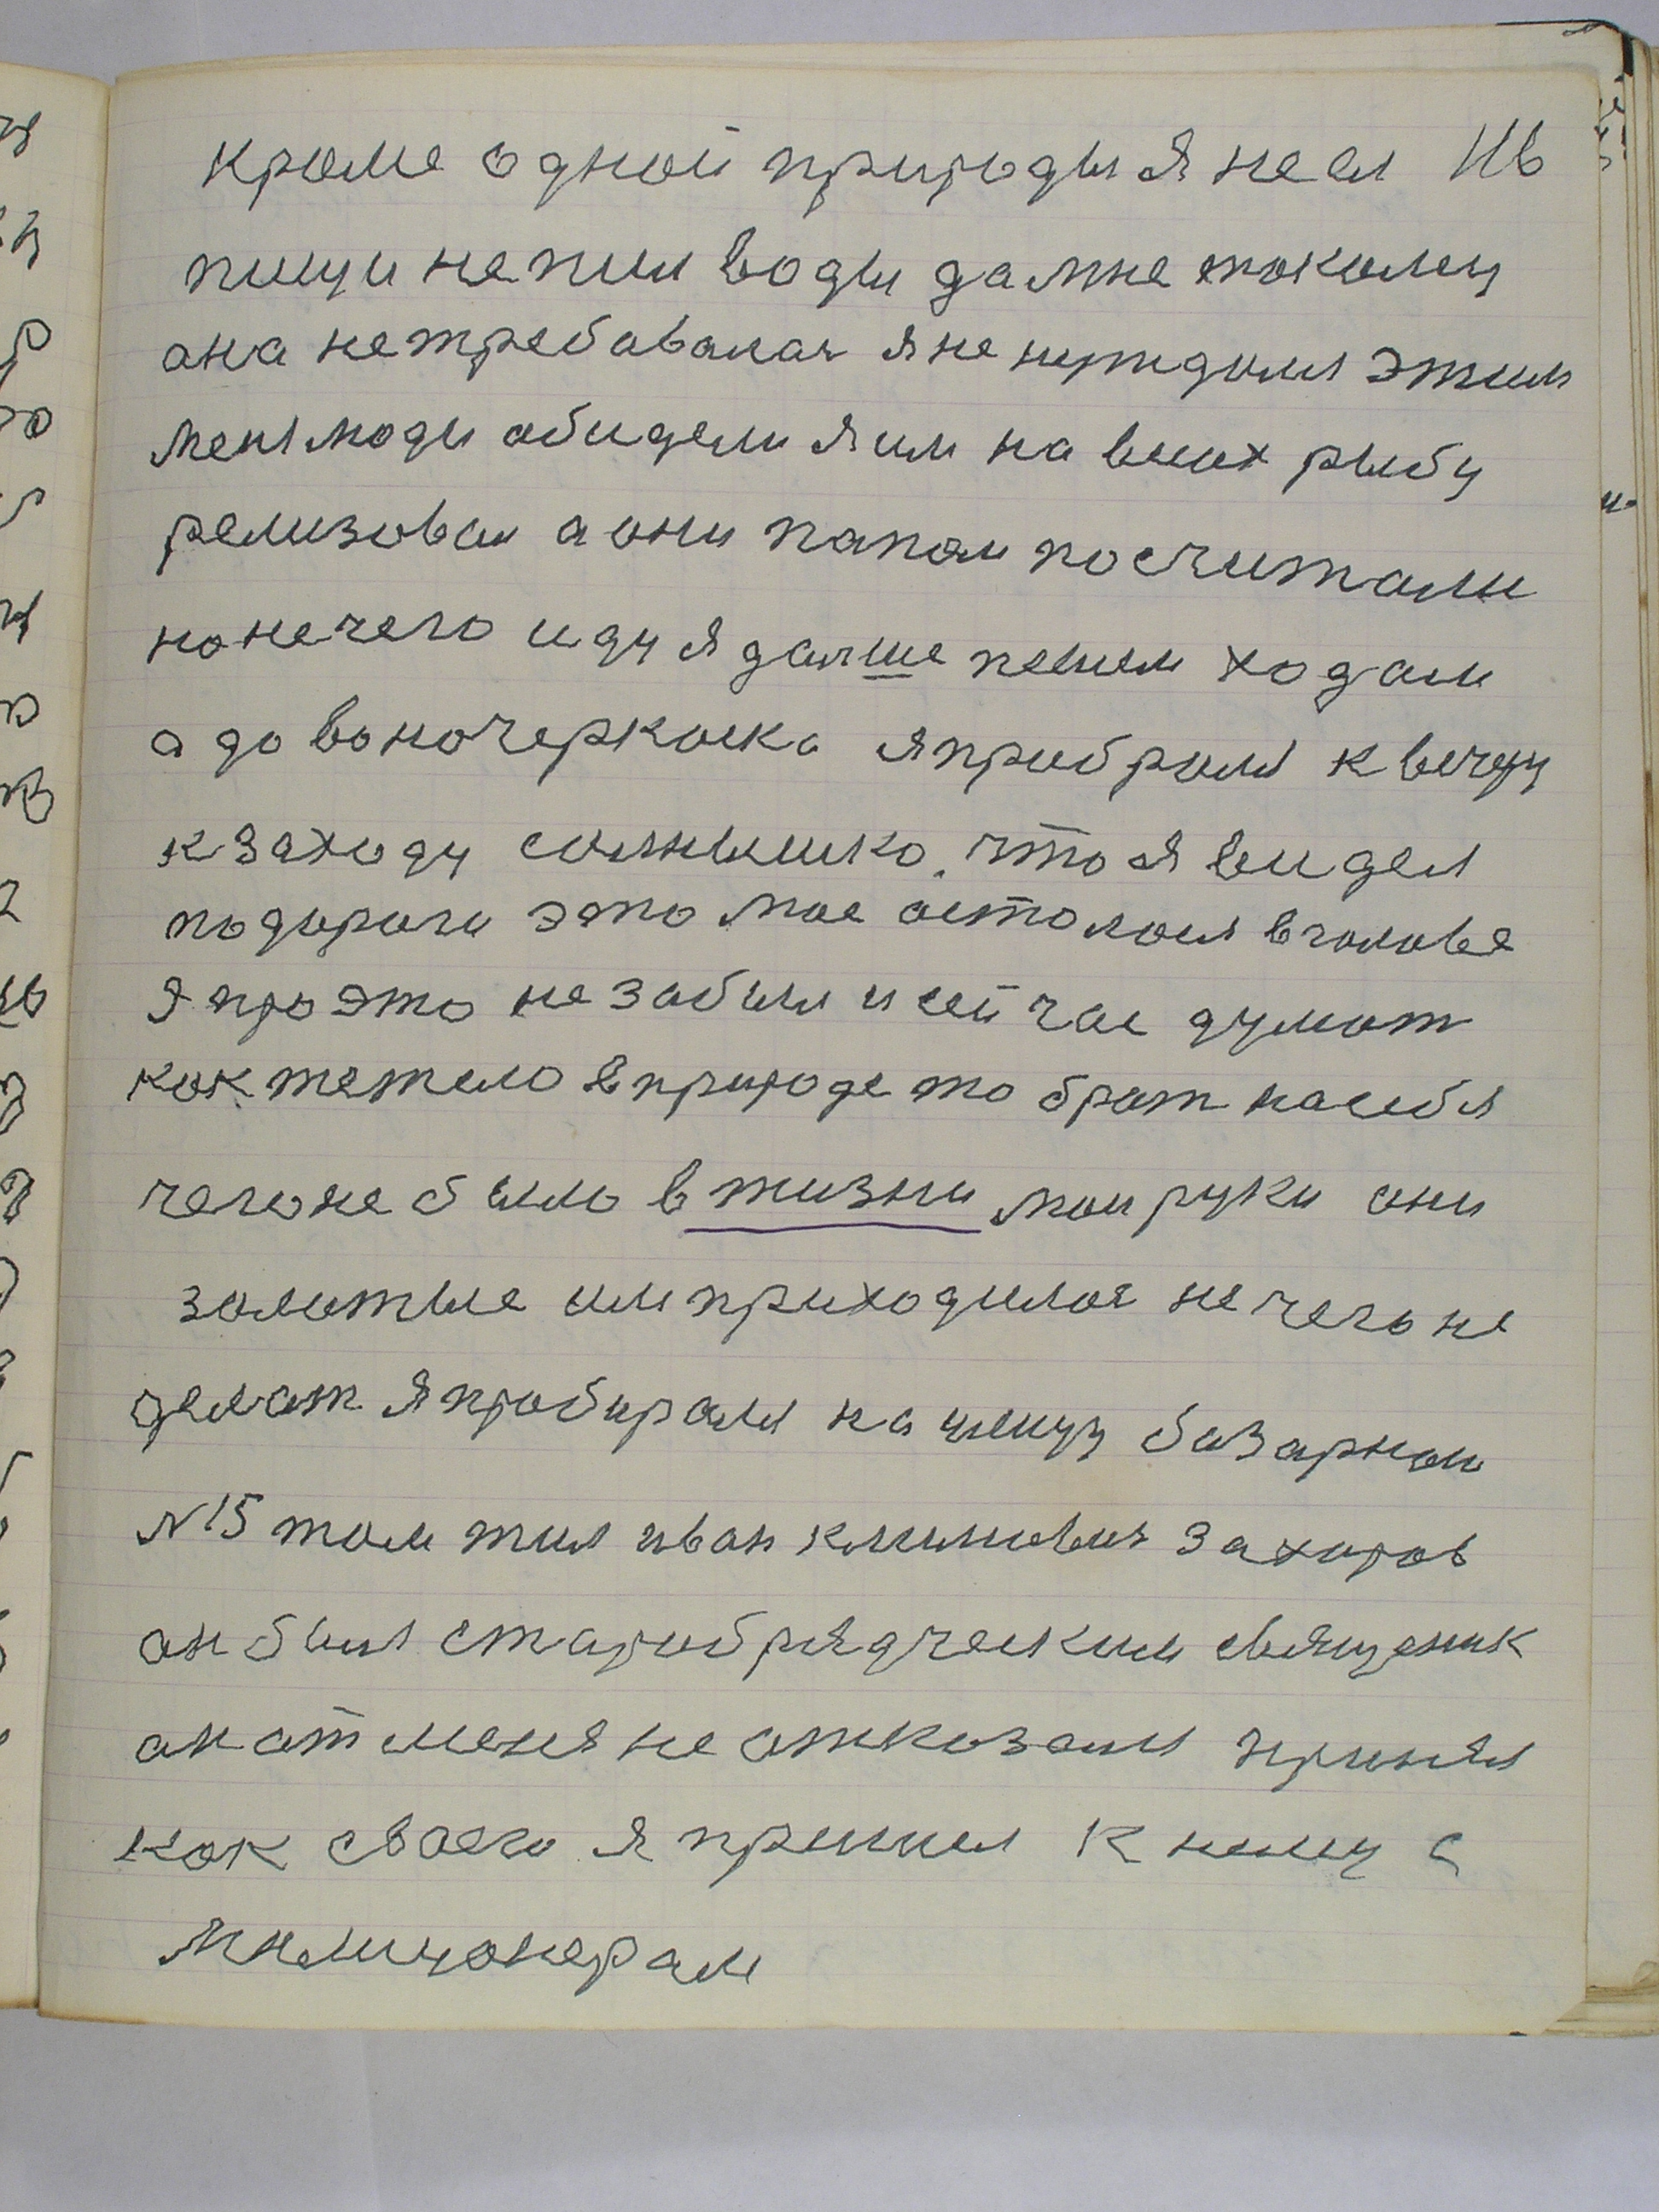 кроме одной природы я не ел Ив
пищи не пил воды да мне такому
ана нетребавалас я не нуждался этим
меня люди абидели я им на винт рыбу
реливовал а они папам посчитали
но нечего иду я далше пешим ходам
а до Воночеркаска япробрался к вечру
к заходу солнышко. что я видел
подороги это мае асталося в галаве
Я про это не забыл и сейчас думат
как тежело вприроде то брат насебя
чегоне было в жизни маи руки ани
залатые им приходилос нечего не
делат я пробирался на улицу базарнаи
№15 там жил иван климович Захаров
ан был старобрядческим священик
ан ат меня не атказался принял
как сваего я пришел к нему с
милицонерам